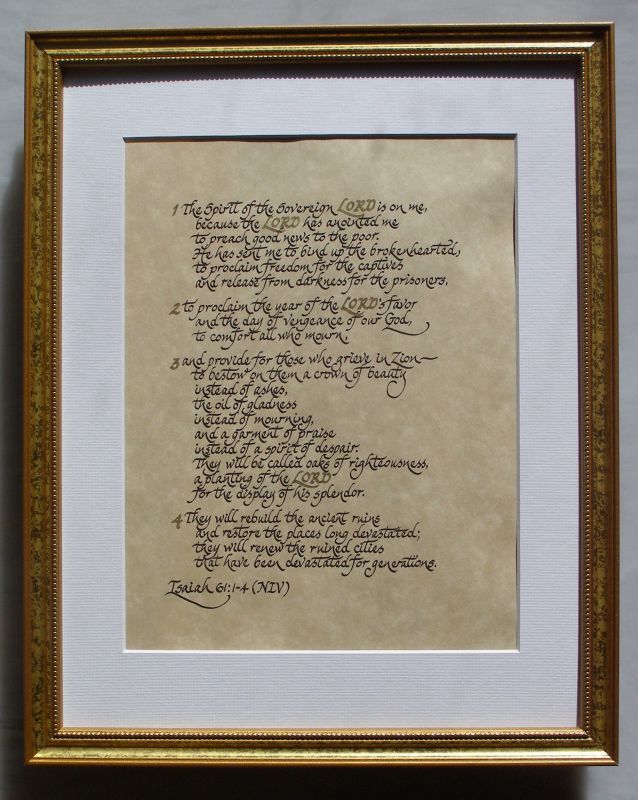 1 The Spirit of the Sovereign LORD is on me,
because the LORD has anointed me
to preach good news to the poor.
He has sent me to bind up the brokenhearted,
to proclaim freedom for the captives
and release from darkness for the prisoners,
2 to proclaim the year of the LORD's favor
and the day of vengeance of our God,
to comfort all who mourn,
3 and provide for those who grieve in Zion—
to bestow on them a crown of beauty
instead of ashes,
the oil of gladness
instead of mourning,
and a garment of praise
instead of a spirit of despair.
They will be called oaks of righteousness,
a planting of the LORD
for the display of his splendor.
4 They will rebuild the ancient ruins
and restore the places long devastated;
they will renew the ruined cities
that have been devastated for generations.
Isaiah 61:1-4 (NIV)